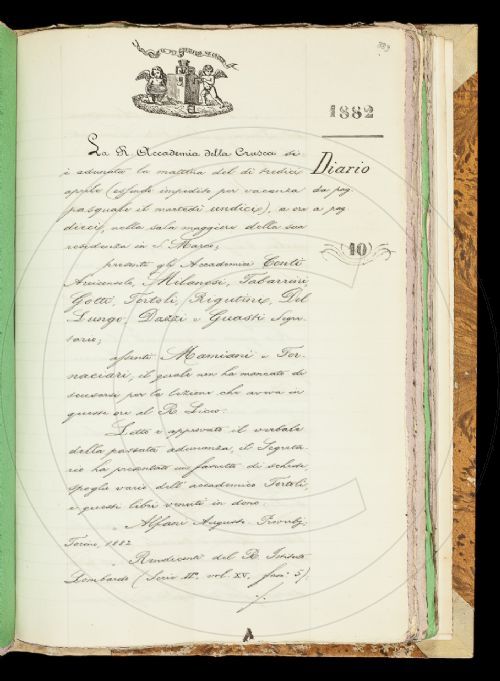 1882
Diario
da pag.
a pag
10
La R. Accademia della Crusca si
è adunata la mattina del dì tredici
aprile (essendo impedito per vacanza
pasquale il martedì undici), a ore
dieci, nella sala maggiore della sua
residenza in S. Marco;
presenti gli Accademici Conti
Arciconsolo, Milanesi, Tabarrini
Gotti, Tortoli, Rigutini, Del
Lungo, Dazzi e Guasti Segre-
tario;
assenti Mamiani e For-
naciari, il quale non ha mancato di
scusarsi per la lezione che aveva in
queste ore al R. Liceo.
Letto e approvato il verbale
della passata adunanza, il Segreta-
rio ha presentato un fascetto di schede
spoglio vario dell'accademico Tortoli,
e questi libri venuti in dono.
Alfani Augusto.
Torino, 1882
Rendiconti del R. Istituto
Lombardo (Serie II. vol. XV, fasc. 5)
A